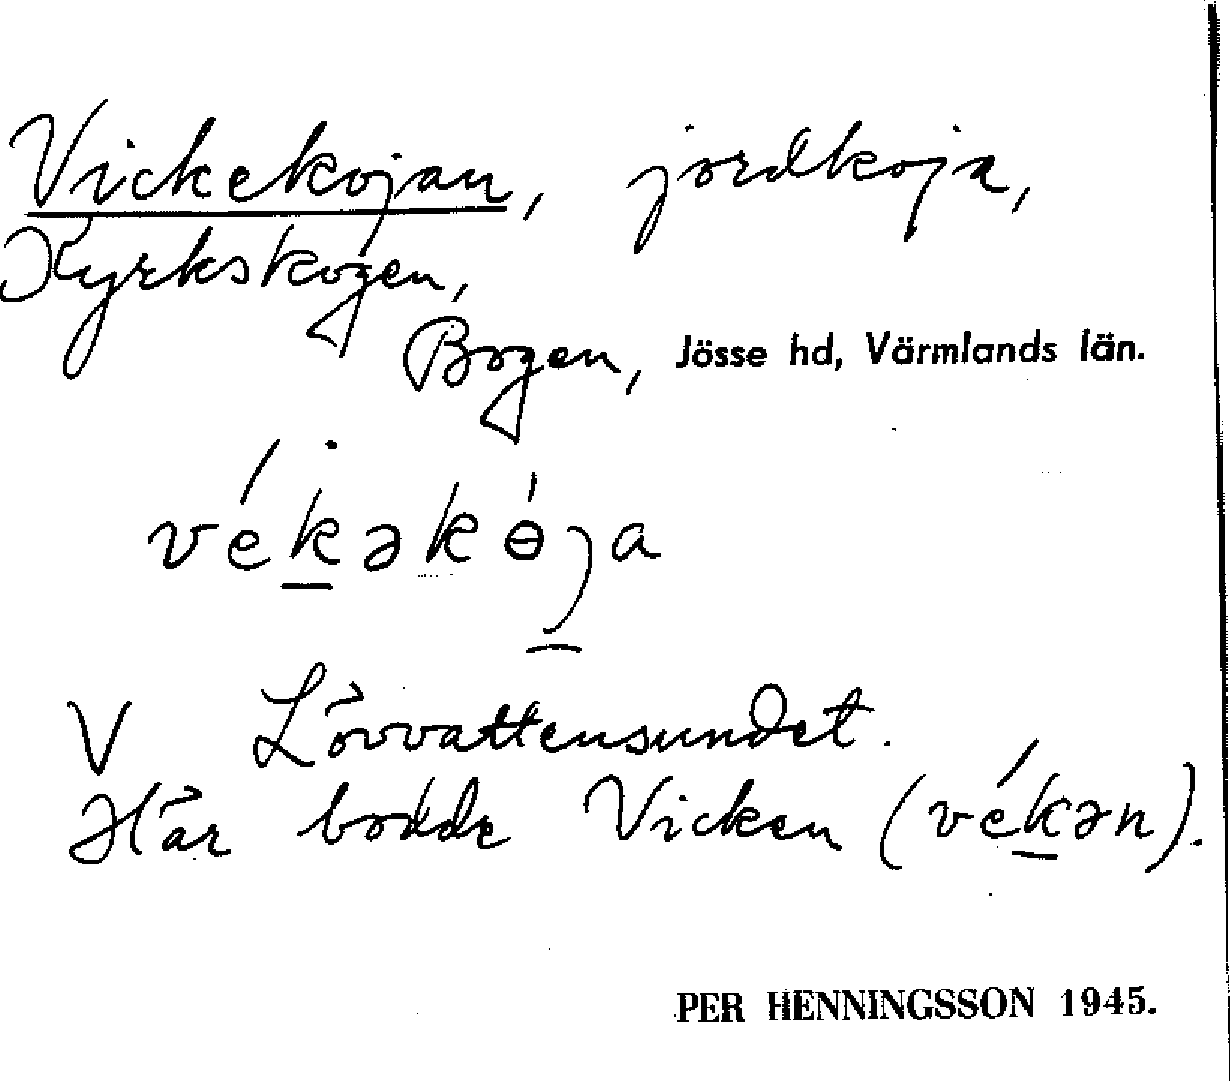 Vickekojan, jordkoja,
Kyrkskogen,
Bogen, Jösse hd, Värmlands län.
vék̠əkɵ́j̠a
V Lövvattensundet.
Här bodde Vicken (vék̠ən).
PER HENNINGSSON 1945.